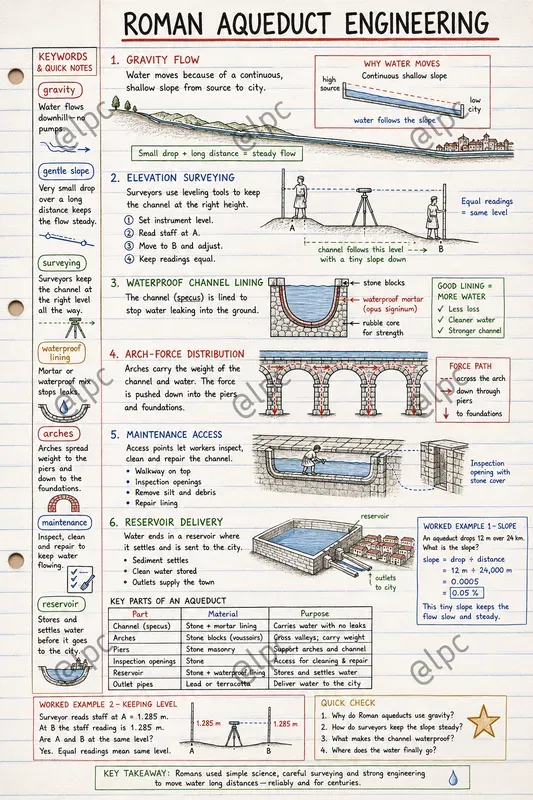 ROMAN AQUEDUCT ENGINEERING
KEYWORDS
& QUICK NOTES
gravity
Water flows
downhill—no
pumps.
gentle slope
Very small drop
over a long
distance keeps
the flow steady.
surveying
Surveyors keep
the channel at
the right level
all the way.
waterproof
lining
Mortar or
waterproof mix
stops leaks.
arches
Arches spread
weight to the
piers and
down to the
foundations.
maintenance
Inspect, clean
and repair to
keep water
flowing.
reservoir
Stores and
settles water
before it goes
to the city.
1. GRAVITY FLOW
Water moves because of a continuous,
shallow slope from source to city.
WHY WATER MOVES
Continuous shallow slope
high
source
low
city
water follows the slope
Small drop + long distance = steady flow
2. ELEVATION SURVEYING
Surveyors use leveling tools to keep
the channel at the right height.
1 Set instrument level.
2 Read staff at A.
3 Move to B and adjust.
4 Keep readings equal.
A
B
Equal readings
= same level
channel follows this level
with a tiny slope down
3. WATERPROOF CHANNEL LINING
The channel (specus) is lined to
stop water leaking into the ground.
stone blocks
waterproof mortar
(opus signinum)
rubble core
for strength
GOOD LINING =
MORE WATER
✓ Less loss
✓ Cleaner water
✓ Stronger channel
4. ARCH-FORCE DISTRIBUTION
Arches carry the weight of the
channel and water. The force
is pushed down into the piers
and foundations.
FORCE PATH
across the arch
down through
piers
to foundations
5. MAINTENANCE ACCESS
Access points let workers inspect,
clean and repair the channel.
• Walkway on top
• Inspection openings
• Remove silt and debris
• Repair lining
Inspection
opening with
stone cover
6. RESERVOIR DELIVERY
Water ends in a reservoir where
it settles and is sent to the city.
• Sediment settles
• Clean water stored
• Outlets supply the town
reservoir
outlets
to city
WORKED EXAMPLE 1-SLOPE
An aqueduct drops 12 m over 24 km.
What is the slope?
slope = drop ÷ distance
= 12 m ÷ 24,000 m
= 0.0005
= 0.05 %
This tiny slope keeps the
flow slow and steady.
KEY PARTS OF AN AQUEDUCT
Part Material Purpose
Channel (specus) Stone + mortar lining Carries water with no leaks
Arches Stone blocks (voussoirs) Cross valleys; carry weight
Piers Stone masonry Support arches and channel
Inspection openings Stone Access for cleaning & repair
Reservoir Stone + waterproof lining Stores and settles water
Outlet pipes Lead or terracotta Deliver water to the city
WORKED EXAMPLE 2-KEEPING LEVEL
Surveyor reads staff at A = 1.285 m.
At B the staff reading is 1.285 m.
Are A and B at the same level?
Yes. Equal readings mean same level.
1.285 m
1.285 m
A
B
QUICK CHECK
1. Why do Roman aqueducts use gravity?
2. How do surveyors keep the slope steady?
3. What makes the channel waterproof?
4. Where does the water finally go?
KEY TAKEAWAY: Romans used simple science, careful surveying and strong engineering
to move water long distances—reliably and for centuries.
@lpc
@lpc
@lpc
@lpc
@lpc
@lpc
@lpc
@lpc